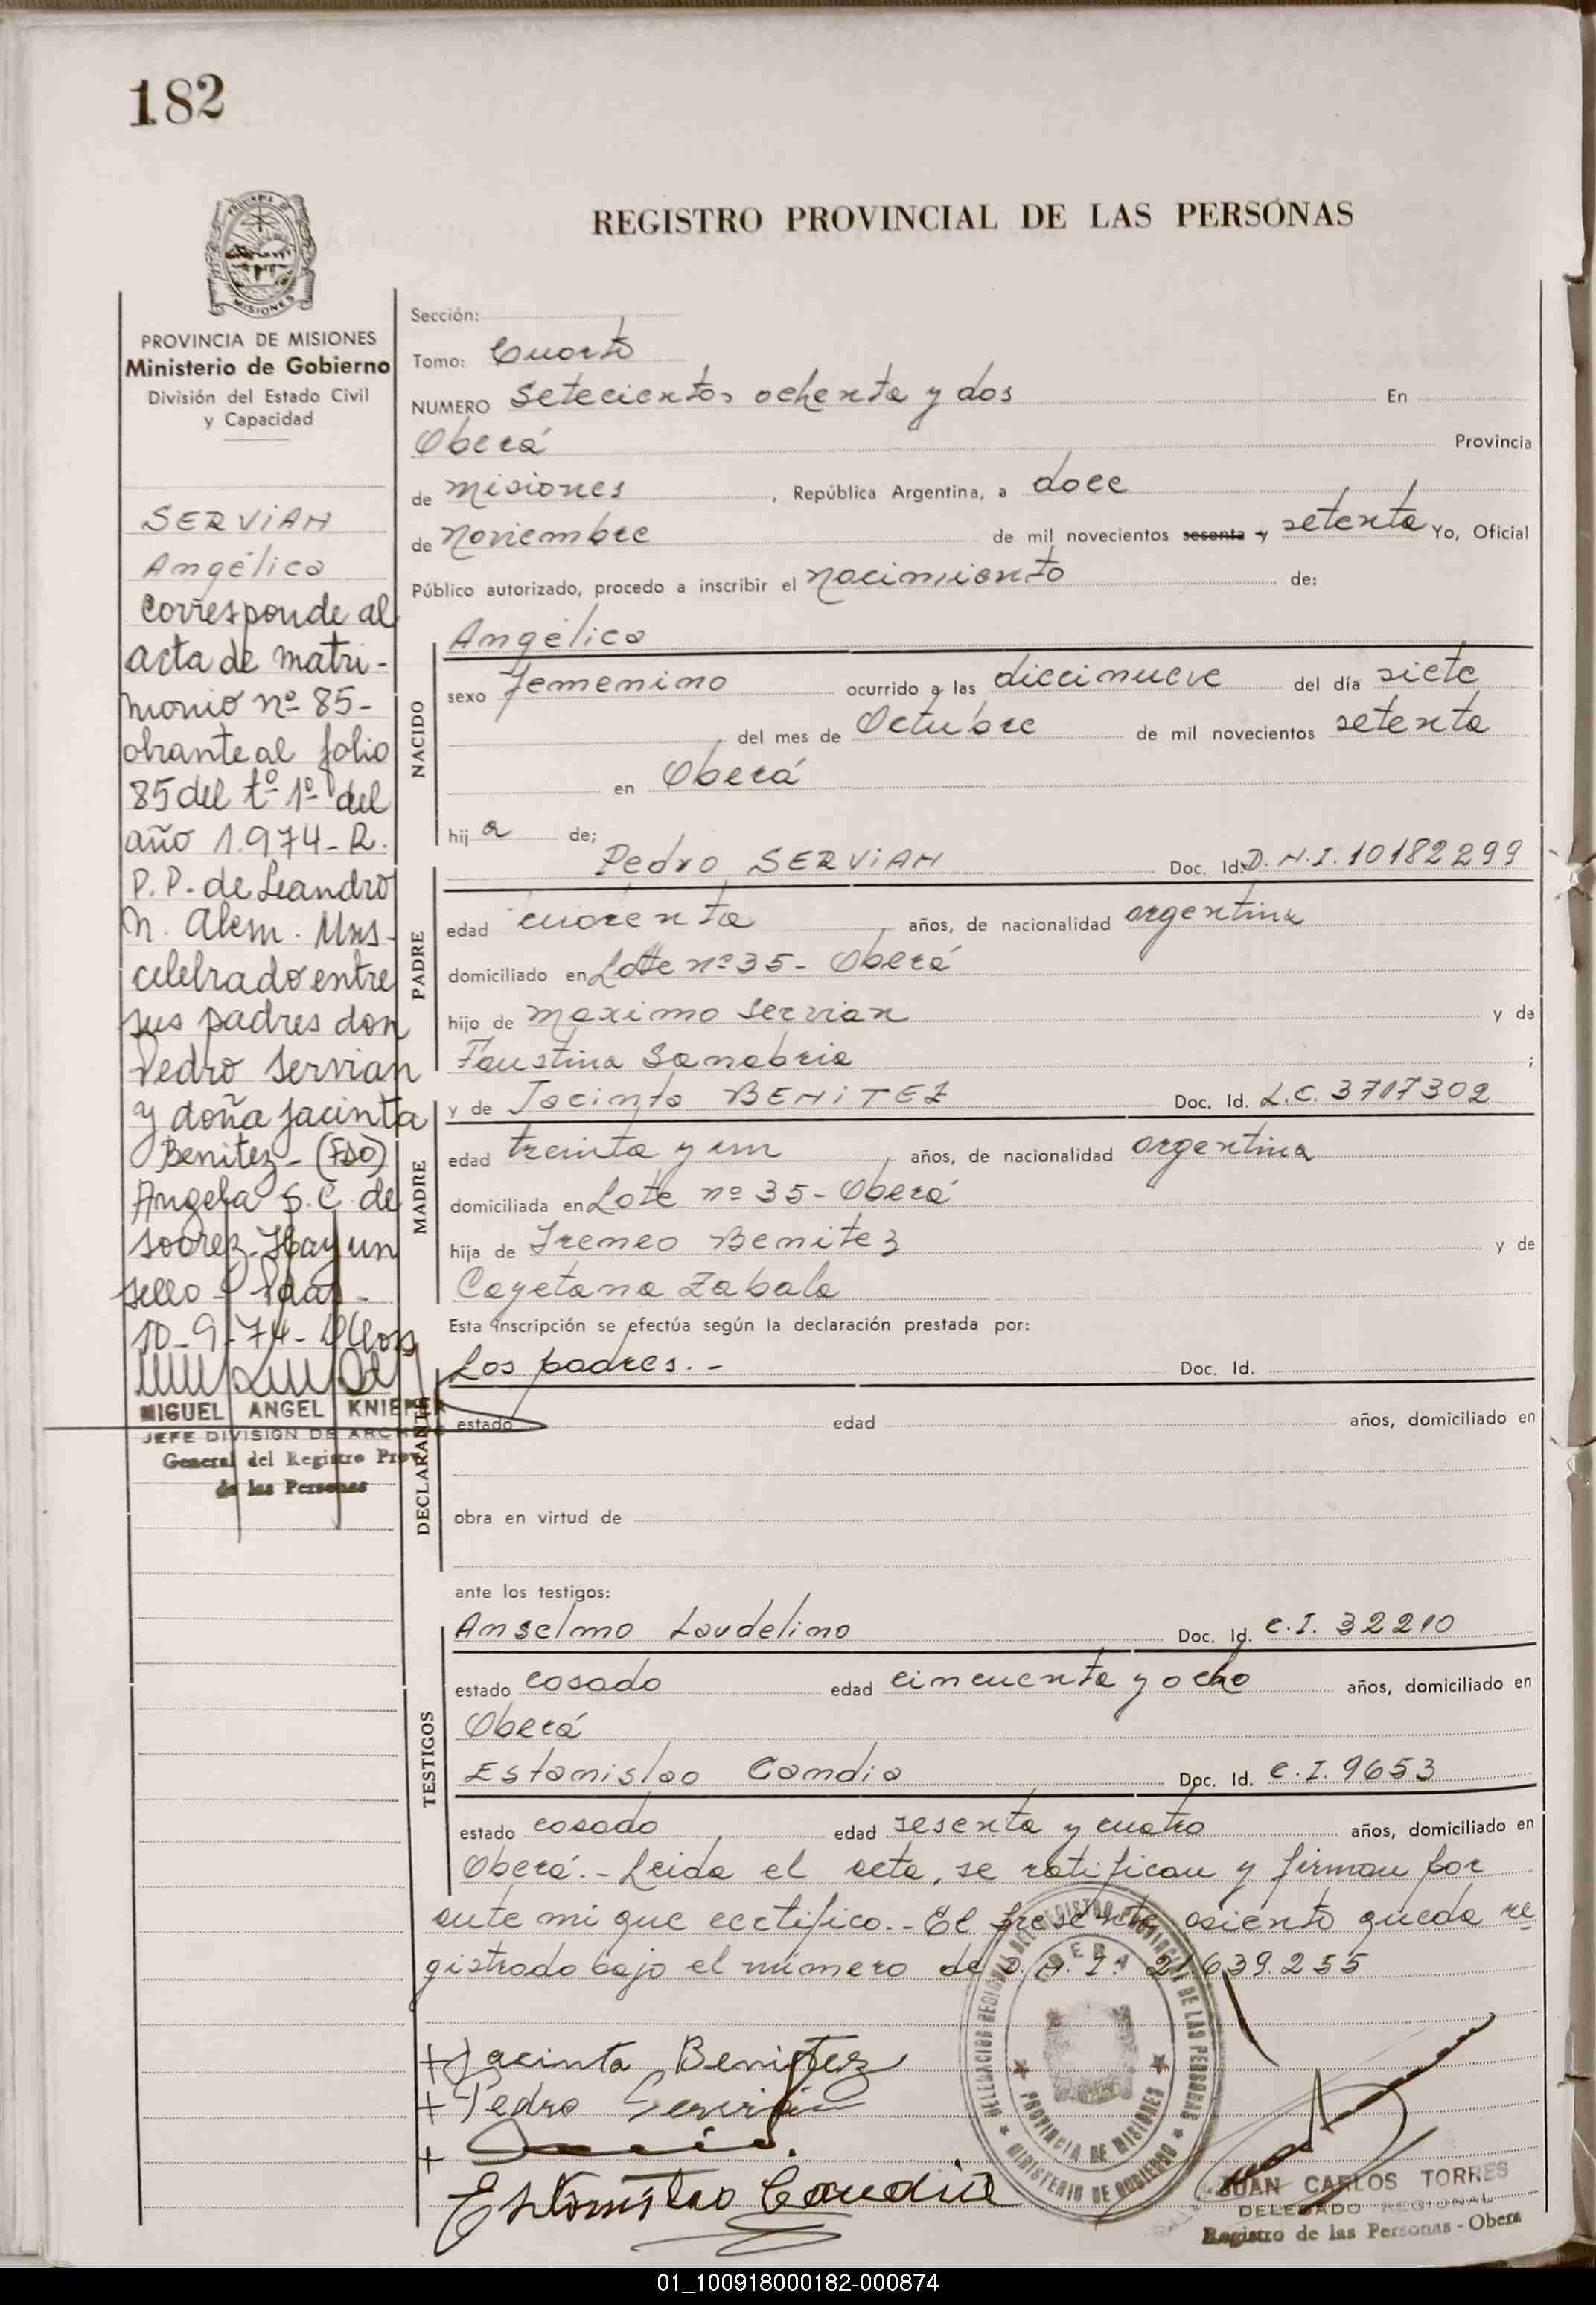 182
REGISTRO PROVINCIAL DE LAS PERSONAS
MISIONES
PROVINCIA DE MISIONES
Ministerio de Gobierno
División del Estado Civil
y Capacidad
SERVIAN
Angélica
Corresponde al
acta de matri-
monio nº 85-
obrante al folio
85 del tº 1º del
año 1.974-R.
P.P. de Leandro
N. Alem. Mns-
celebrado entre
sus padres don
Pedro Servian
y doña Jacinta
Benitez-(Fdo)
Angela S.C. de
Soarez-Hay un
sello - Pdas-
10-9-74-
MIGUEL ANGEL KNIEPER
JEFE DIVISION DE ARCHIVO
General del Registro Prov.
de las Personas
Sección:
Tomo: Cuarto
NUMERO Setecientos ochenta y dos En
Oberá Provincia
de Misiones, República Argentina, a doce
de Noviembre de mil novecientos sesenta y setenta Yo, Oficial
Público autorizado, procedo a inscribir el nacimiento de:
NACIDO
Angélica
sexo femenino ocurrido a las diecinueve del día siete
del mes de Octubre de mil novecientos setenta
en Oberá
hij a de;
PADRE
Pedro SERVIAN Doc. Id. D.N.I. 10182299
edad cuarenta años, de nacionalidad argentina
domiciliado en Lote nº 35- Oberá
hijo de Maximo Servian y de
Faustina Sanabria ;
MADRE
y de Jacinta BENITEZ Doc. Id. L.C. 3717302
edad treinta y un años, de nacionalidad argentina
domiciliada en Lote nº 35-Oberá
hija de Ireneo Benitez y de
Cayetana Zabala
Esta inscripción se efectúa según la declaración prestada por:
DECLARANTE
Los padres.- Doc. Id.
estado edad años, domiciliado en
obra en virtud de
ante los testigos:
TESTIGOS
Anselmo Laudelino Doc. Id. C.I. 32210
estado casado edad cincuenta y ocho años, domiciliado en
Oberá
Estanislao Candia Doc. Id. C.I. 9653
estado casado edad sesenta y cuatro años, domiciliado en
Oberá.- Leida el acta, se ratifican y firman por
ante mi que certifico.- El presente asiento queda re
gistrado bajo el número de D.N.I. 21.639.255
DELEGACION REGIONAL DEL REGISTRO PROVINCIAL DE LAS PERSONAS
OBERA
PROVINCIA DE MISIONES
MINISTERIO DE GOBIERNO
+ Jacinta Benitez
+ Pedro Servián
+
Estanislao Candia
JUAN CARLOS TORRES
DELEGADO REGIONAL
Registro de las Personas - Obera
01_100918000182-000874